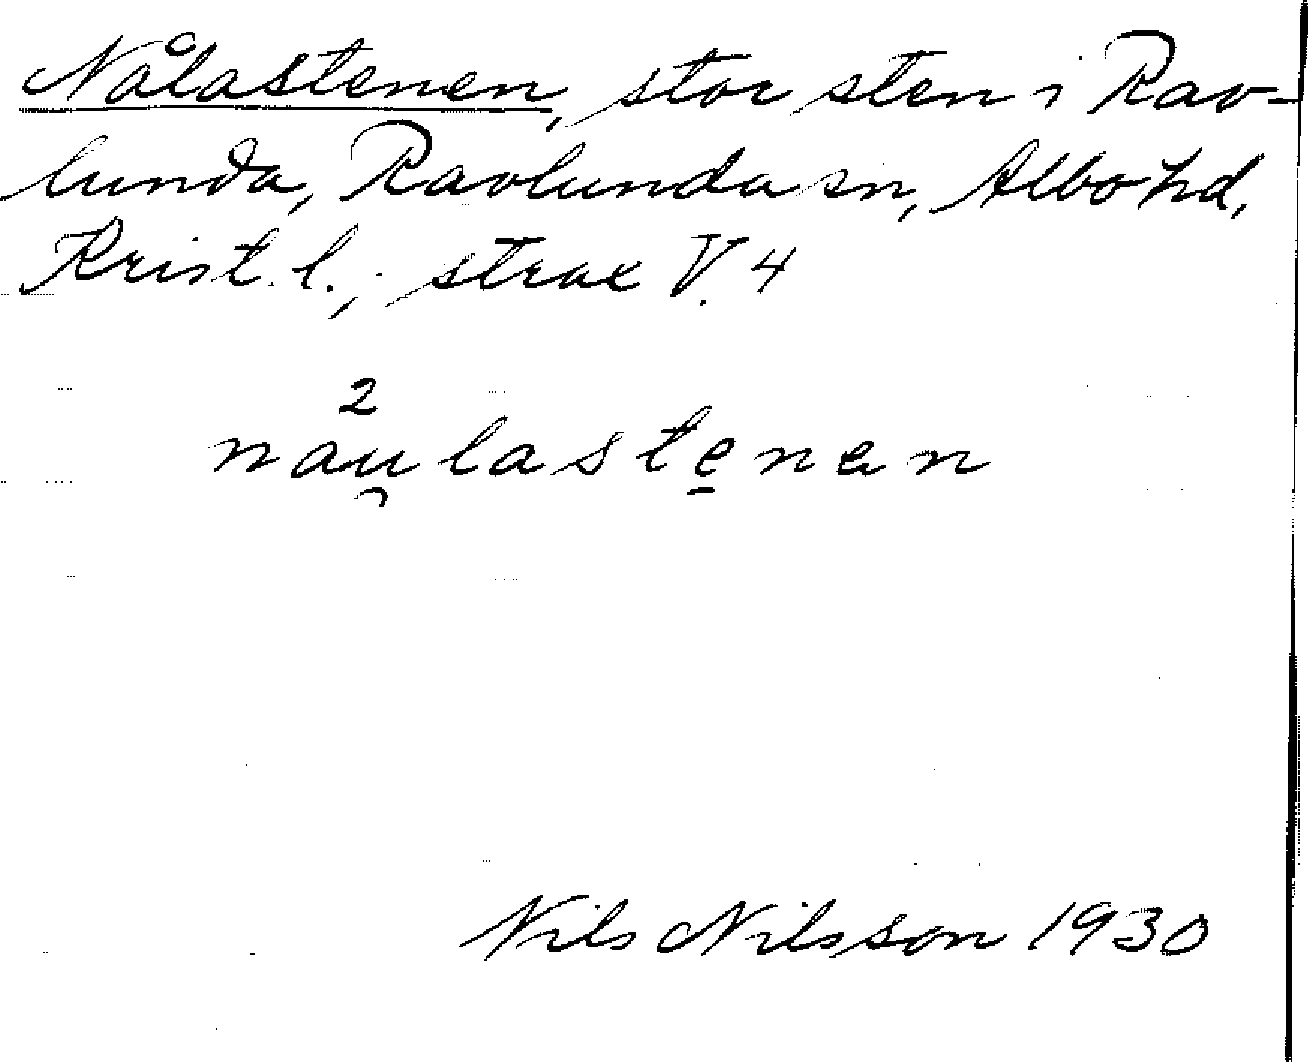 Nålastenen, stor sten i Rav-
lunda, Ravlunda sn, Albo hd,
Krist. l.; strax V. 4
2
nau̯lastenen
Nils Nilsson 1930